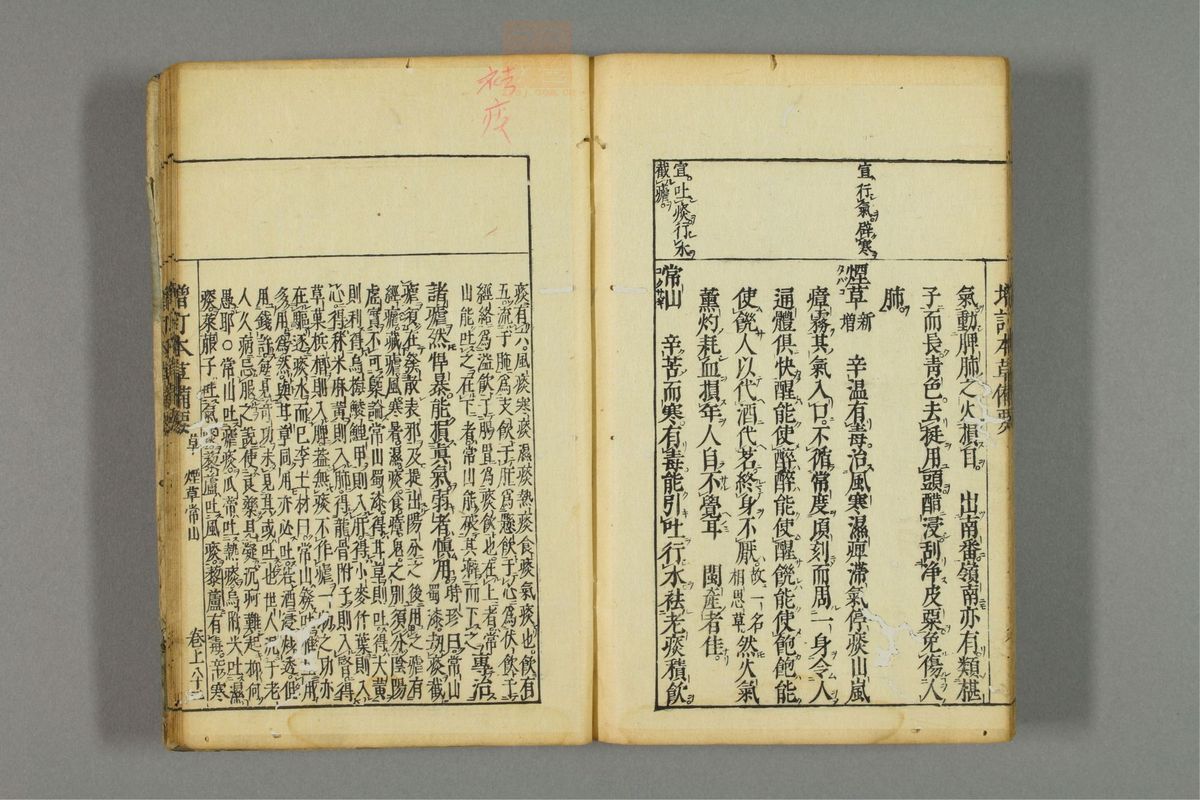 増訂本草備要
氣動脾肺之火損目 出南番嶺南亦有類椹
子而長靑色去挺用頭醋浸刮淨皮粟免傷人
肺
宜行氣辟寒
煙草 新増 辛温有毒治風寒濕痺滯氣停痰山嵐
瘴霧其氣入口不循常度頃刻而周一身令人
通體俱快醒能使醉醉能使醒饑能使飽飽能
使饑人以代酒代茗終身不厭 故一名相思草 然火氣
薰灼耗血損年人自不覺耳 閩産者佳
宜吐痰行水
截瘧
常山 辛苦而寒有毒能引吐行水祛老痰積飮
痰有六風痰寒痰濕痰熱痰食痰氣痰也飮有
五流于肺爲支飮于肝爲懸飮于心爲伏飮于
經絡爲溢飮于腸胃爲痰飮也在上者常
山能吐之在下者常山能破其癖而下之 專治
諸瘧然悍暴能損眞氣弱者愼用 時珍曰常山
蜀漆劫痰截
瘧須在發散表邪及提出陽分之後用之瘧有
經瘧臟瘧風寒暑濕痰食瘴鬼之別須分陰陽
虛實不可槩論常山蜀漆得甘草則吐得大黃
則利得烏梅鯪鯉甲則入肝得小麥竹葉則入
心得秫米麻黃則入肺得龍骨附子則入腎得
草菓檳榔則入脾蓋無痰不作瘧一物之功亦
在驅逐痰水而已李士材曰常山發吐惟生用
多用爲然與甘草同用亦必吐若酒浸炒透但
用錢許每見奇功未見其或吐也世人泥于老
人久病忌服之說使良藥見疑沉疴難起抑何
愚耶○常山吐瘧痰瓜蒂吐熱痰烏附尖吐濕
痰萊菔子吐氣痰藜蘆吐風痰藜蘆有毒辛寒
増訂本草備要 草 煙草常山 卷上六十二